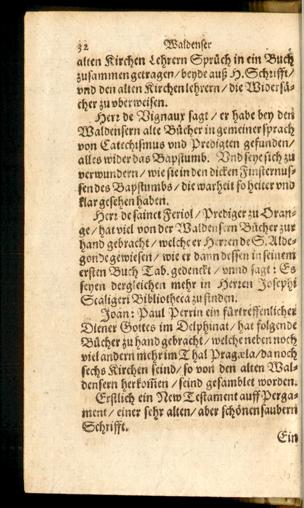 32 Waldenser
alten Kirchen Lehrern Sprüch in ein Buch
zusammen getragen / beyde auß H. Schrifft /
vnd den alten Kirchenlehrern / die Widersä-
cher zu vberweisen.
Herr de Vignaux sagt / er habe bey den
Waldensern alte Bücher in gemeiner sprach
von Catechismus vnd Predigten gefunden /
alles wider das Bapstumb. Vnd seye sich zu
verwundern / wie sie in den dicken Finsternus-
sen des Bapstumbs / die warheit so heiter vnd
klar gesehen haben.
Herr de sainct Feriol / Prediger zu Oran-
ge / hat viel von der Waldensern Bücher zur
hand gebracht / welche er Herren de S. Alde-
gonde gewiesen / wie er dann dessen in seinem
ersten Buch Tab. gedenckt / vnnd sagt: Es
seyen dergleichen mehr in Herren Josephi
Scaligeri Bibliotheca zu finden.
Joan: Paul Perrin ein fürtreffenlicher
Diener Gottes im Delphinat / hat folgende
Bücher zu hand gebracht / welche neben noch
viel andern mehr im Thal Pragæla / da noch
sechs Kirchen seind / so von den alten Wal-
densern herkom̃en / seind gesamblet worden.
Erstlich ein New Testament auff Perga-
ment / einer sehr alten / aber schönen saubern
Schrifft.
Ein